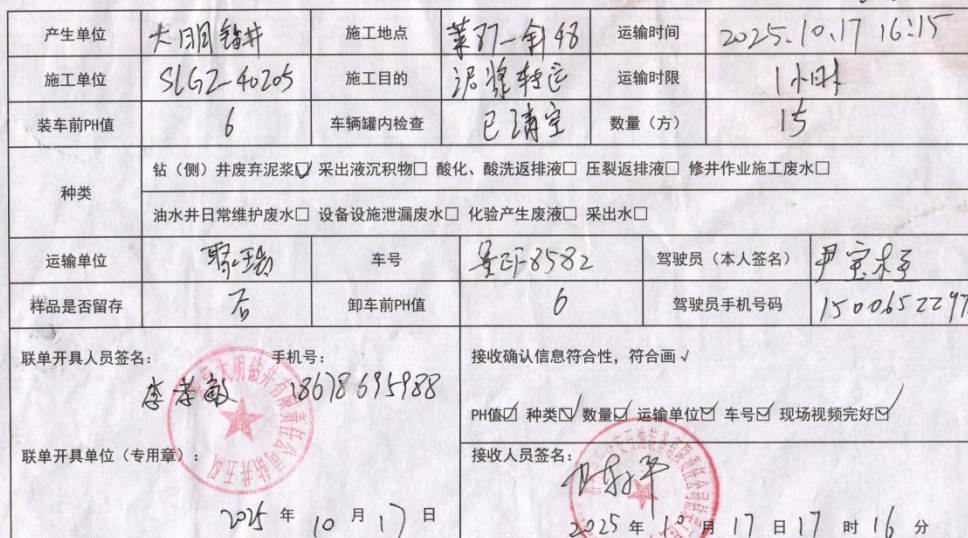 产生单位 大明钻井 施工地点 莱87-斜48 运输时间 2025.10.17 16:15
施工单位 SLGZ-40205 施工目的 泥浆转运 运输时限 1小时
装车前PH值 6 车辆罐内检查 已清空 数量（方） 15
种类
钻（侧）井废弃泥浆☑ 采出液沉积物□ 酸化、酸洗返排液□ 压裂返排液□ 修井作业施工废水□
油水井日常维护废水□ 设备设施泄漏废水□ 化验产生废液□ 采出水□
运输单位 车号 8582 驾驶员（本人签名）
样品是否留存 否 卸车前PH值 6 驾驶员手机号码 1500652297
联单开具人员签名： 手机号：
李孝敏 18678695988
联单开具单位（专用章）：
2025 年 10 月 17 日
接收确认信息符合性，符合画√
PH值☑ 种类☑ 数量☑ 运输单位☑ 车号☑ 现场视频完好☑
接收人员签名：
2025 年 10 月 17 日 17 时 16 分